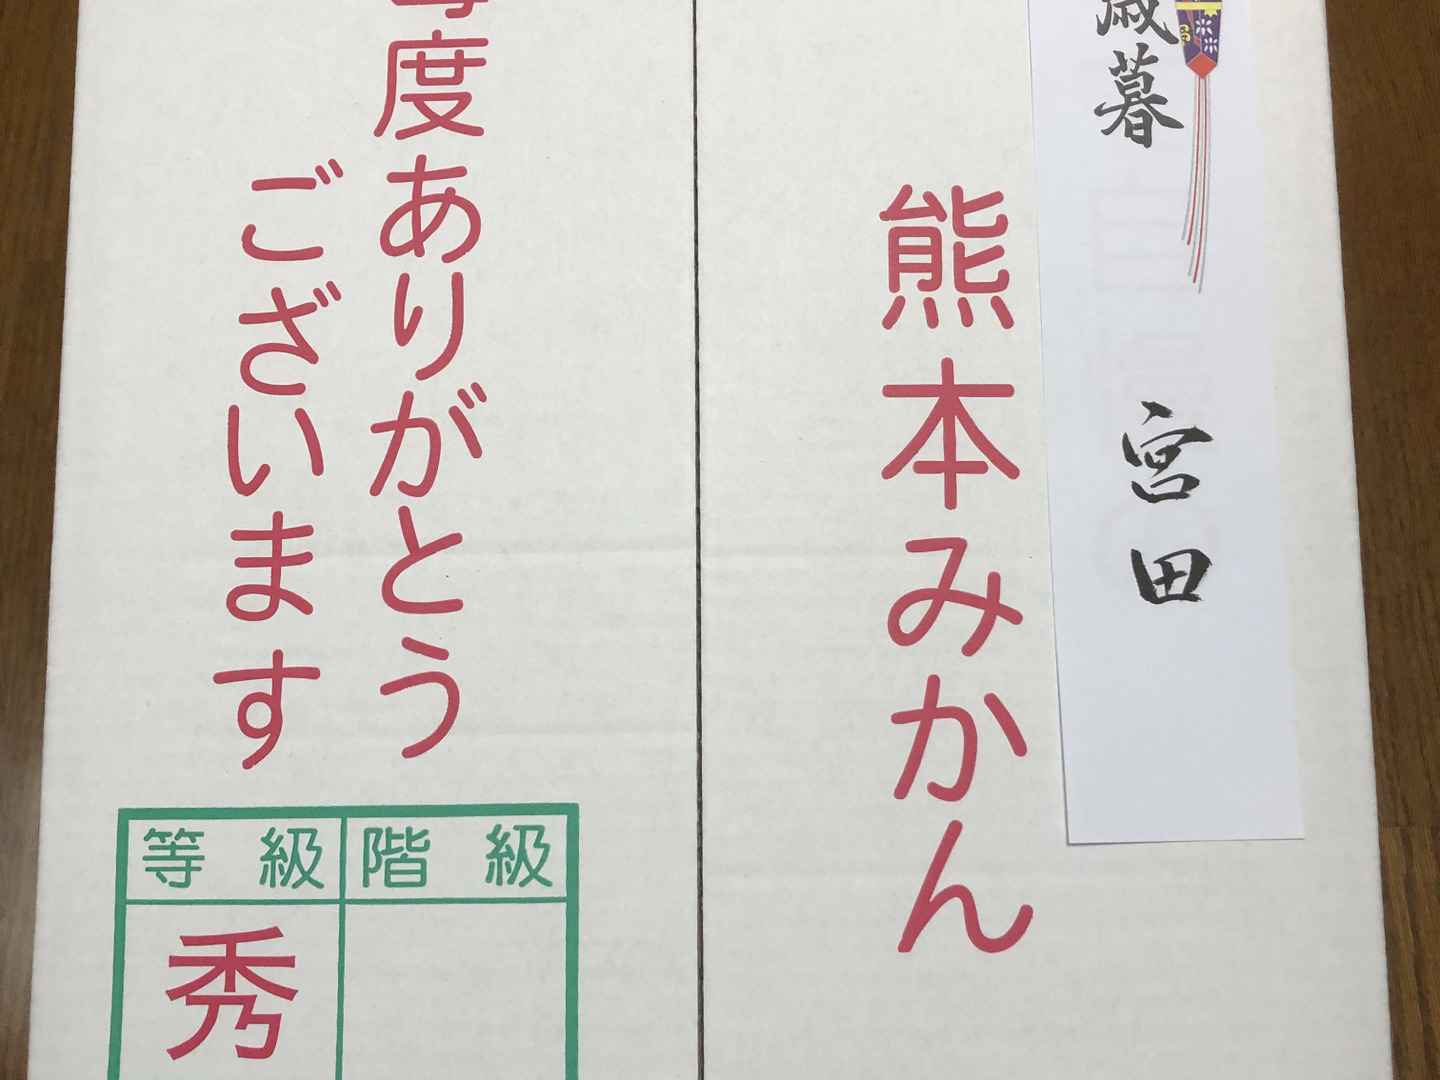 歳暮
宮田
熊本みかん
毎度ありがとう
ございます
等級
階級
秀